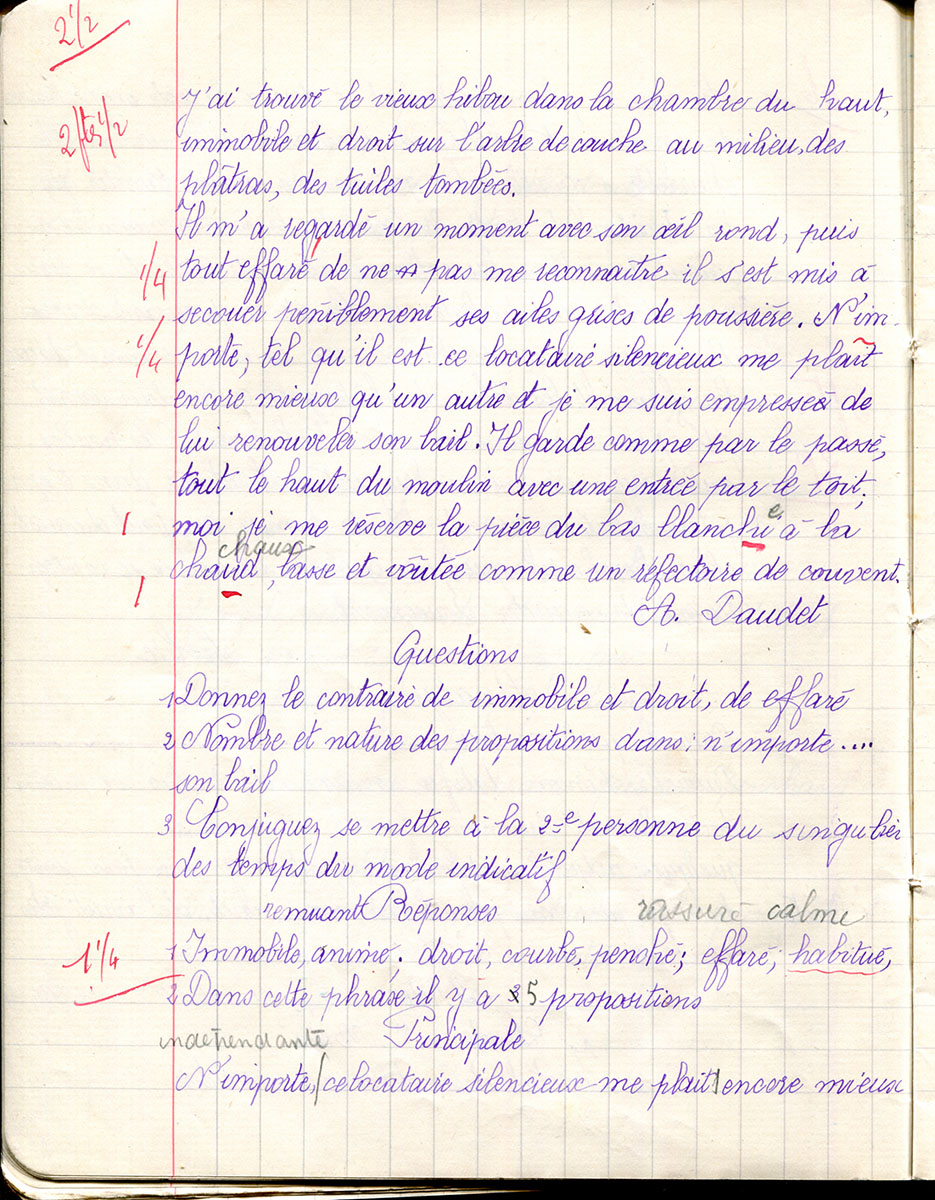 2 1/2
J'ai trouvé le vieux hibou dans la chambre du haut,
2 ftes 1/2
immobile et droit sur l'arbre de couche au milieu, des
plâtras, des tuiles tombées.
Il m'a regardé un moment avec son œil rond, puis
1/4 tout effaré de ne pas me reconnaître il s'est mis à
secouer péniblement ses ailes grises de poussière. N'im-
1/4 porte, tel qu'il est ce locataire silencieux me plaît
encore mieux qu'un autre et je me suis empressé de
lui renouveler son bail. Il garde comme par le passé,
tout le haut du moulin avec une entrée par le toit,
1 moi je me réserve la pièce du bas blanchie à la
chaux
1 chaud, basse et voûtée comme un réfectoire de couvent.
A. Daudet
Questions
1 Donnez le contraire de immobile et droit, de effaré
2 Nombre et nature des propositions dans: n'importe....
son bail
3 Conjuguez se mettre à la 2e personne du singulier
des temps du mode indicatif
remuant Réponses rassuré calme
1 1/4 1 Immobile, animé; droit, courbé, penché; effaré, habitué,
2 Dans cette phrase il y a 5 propositions
indépendante Principale
N'importe,/ce locataire silencieux me plait/encore mieux